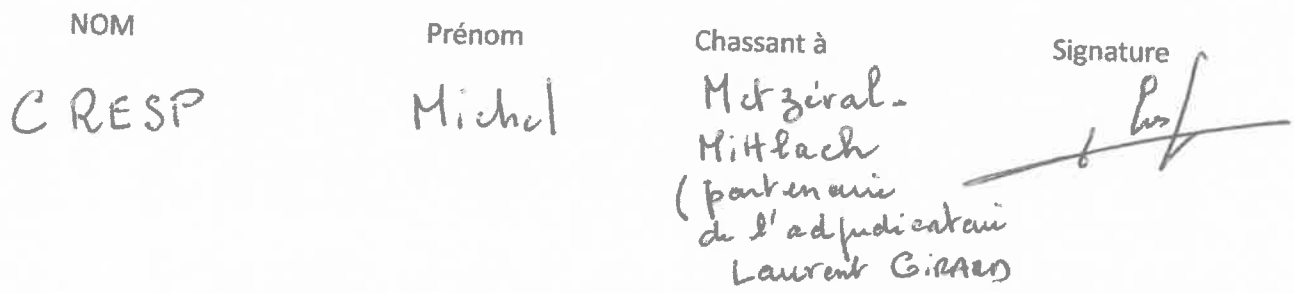 NOM Prénom Chassant à Signature
CRESP Michel Metzéral-
Mittlach
(partenaire
de l'adjudicataire
Laurent GIRARD